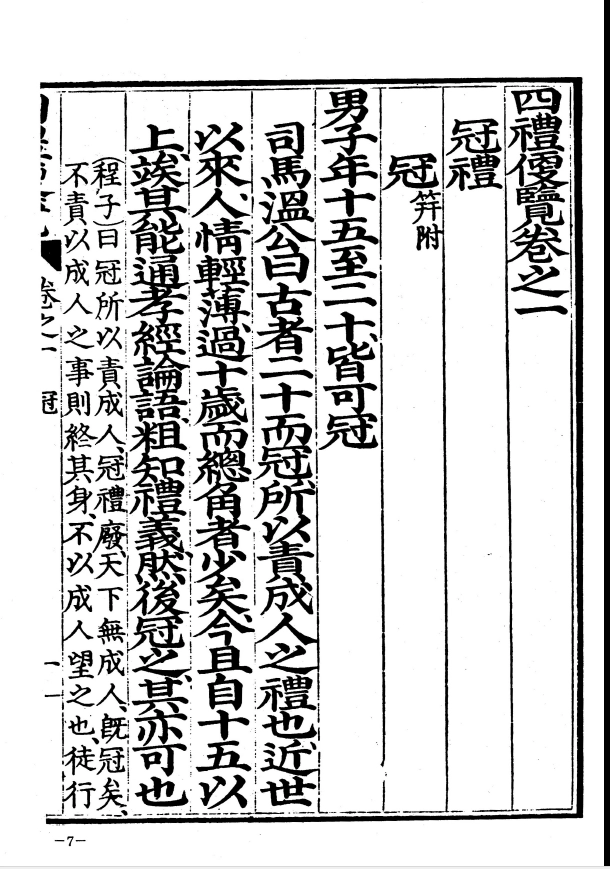 四禮便覽卷之一
冠禮
冠 笄附
男子年十五至二十皆可冠
司馬溫公曰古者二十而冠所以責成人之禮也近世
以來人情輕薄過十歲而總角者少矣今且自十五以
上竢其能通孝經論語粗知禮義然後冠之其亦可也
(程子)曰冠所以責成人、冠禮廢天下無成人、旣冠矣、
不責以成人之事則終其身、不以成人望之也、徒行
卷之一 冠
一
-7-